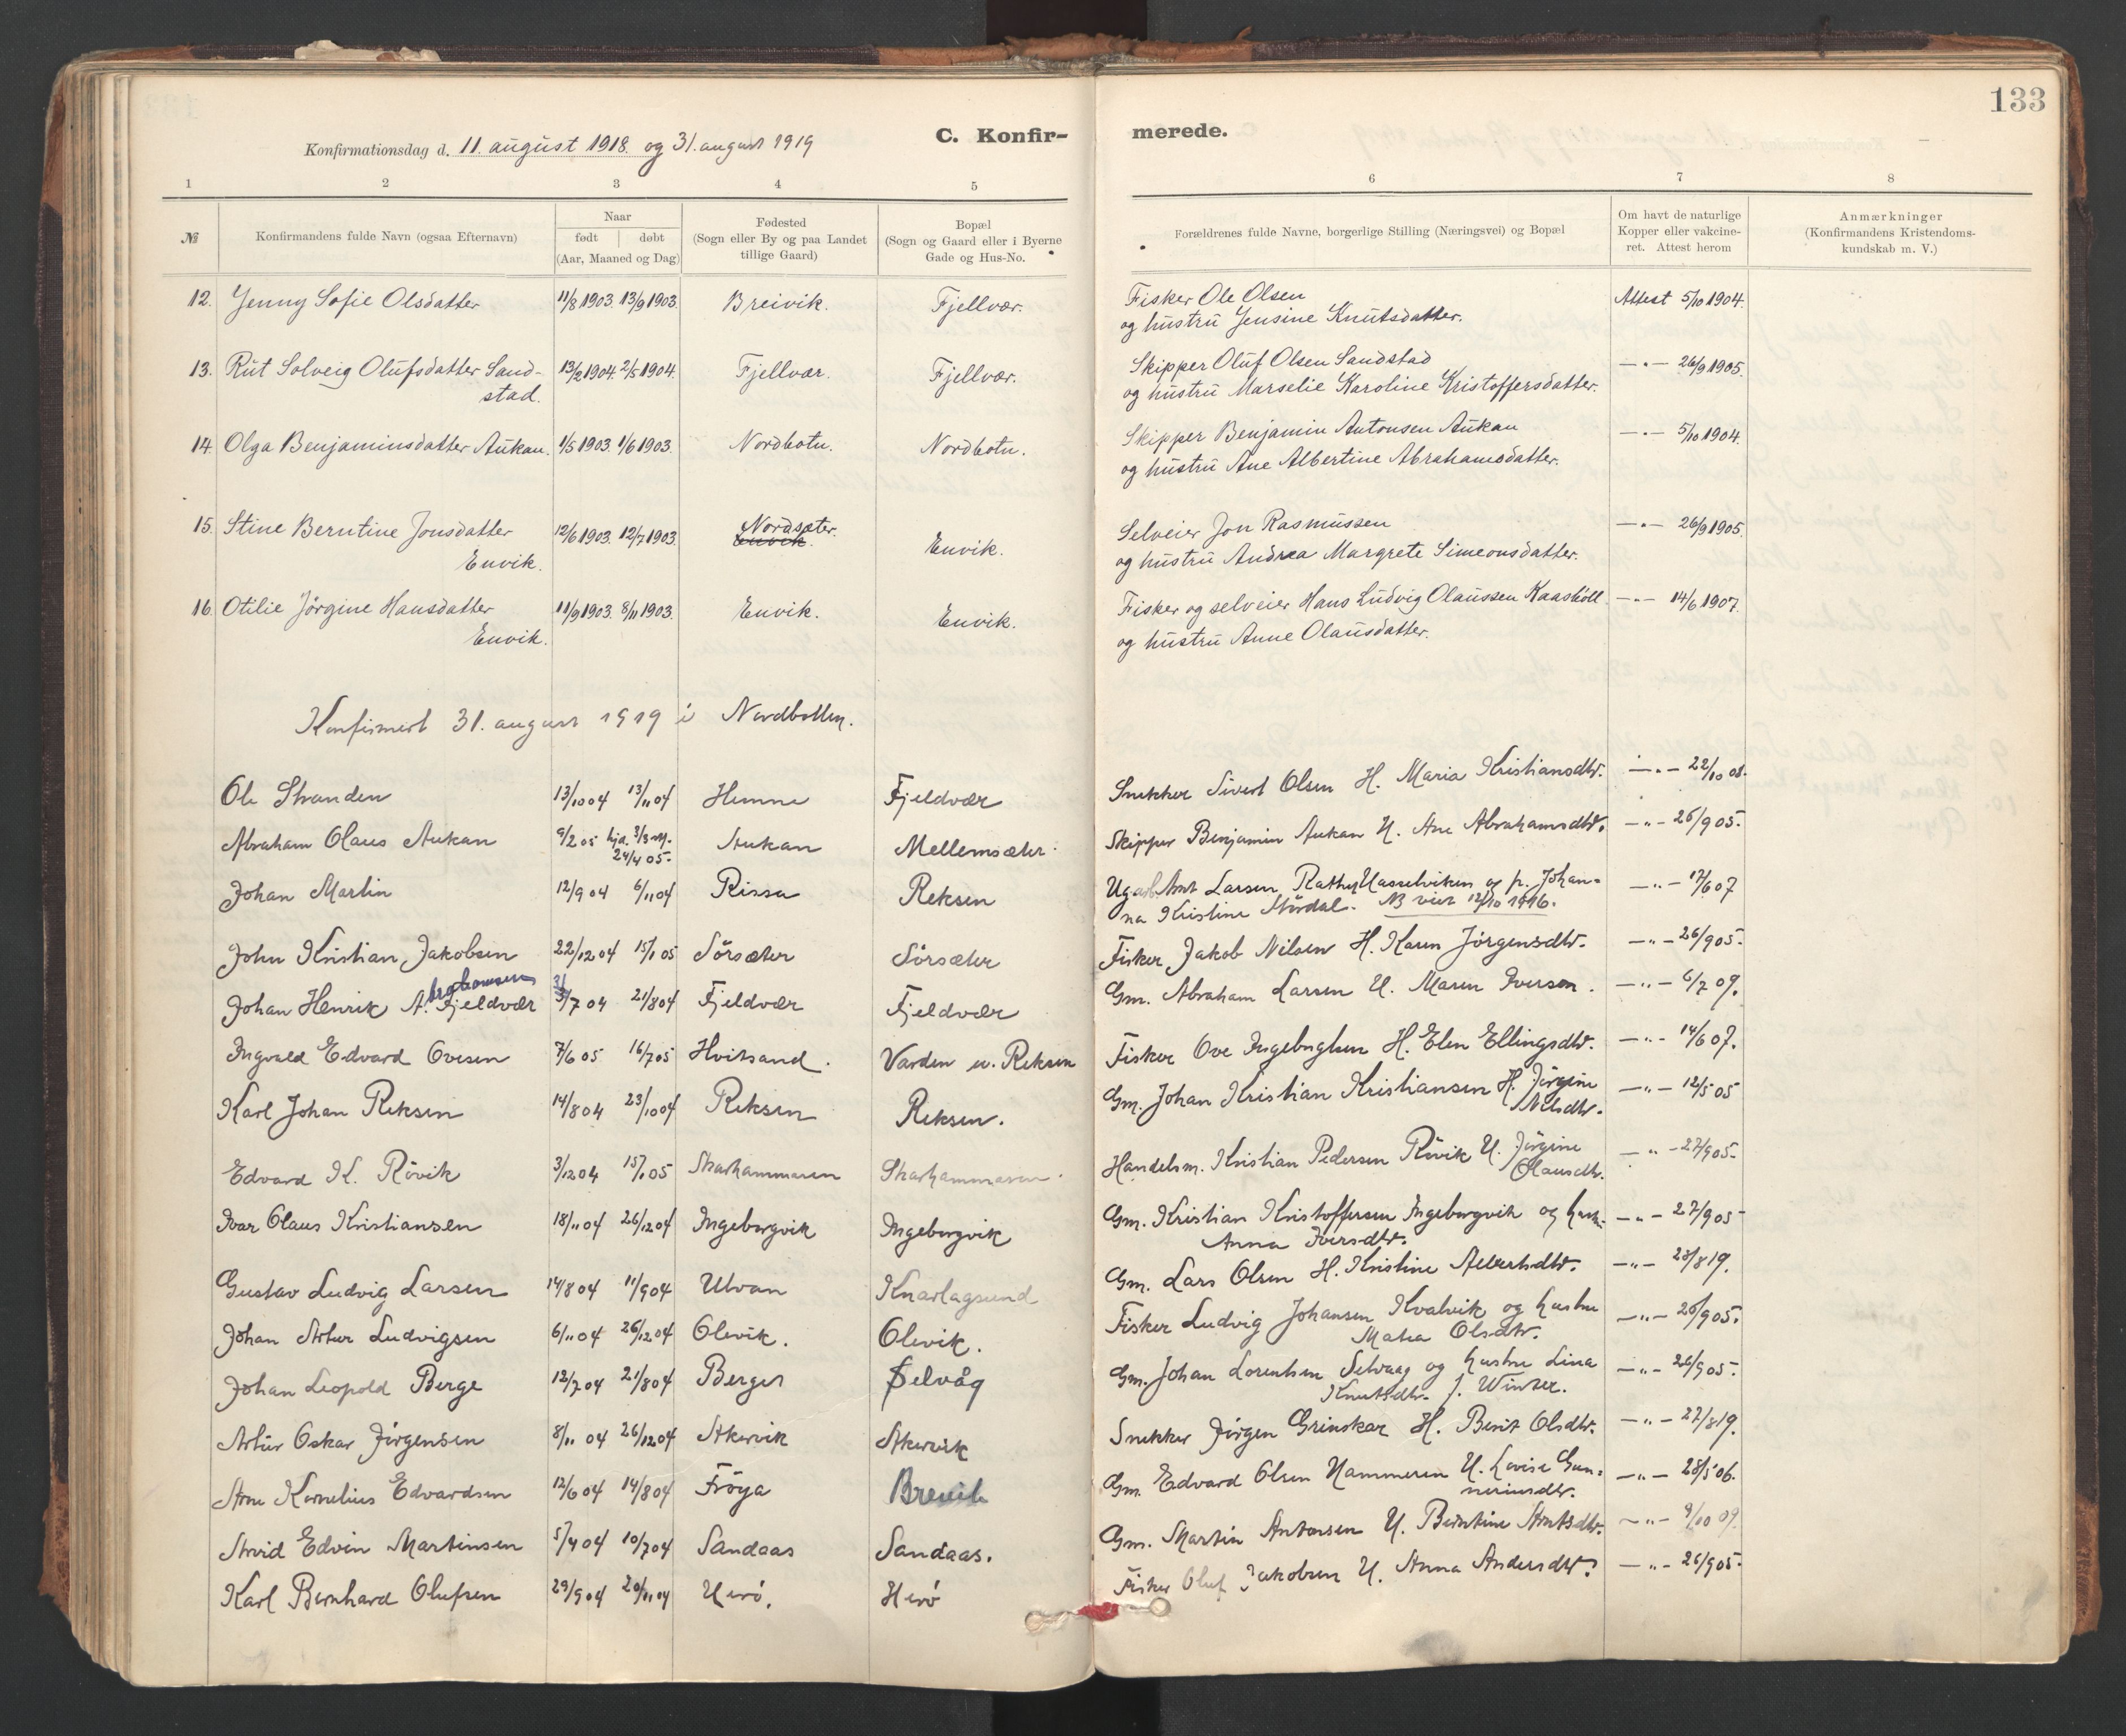 133
Konfirmationsdag d. 11. august 1918. og 31. august 1919
C. Konfir- merede.
1 2 3 4 5 6 7 8
№
Konfirmandens fulde Navn (ogsaa Efternavn)
Naar
født | døbt
(Aar, Maaned og Dag)
Fødested
(Sogn eller By og paa Landet
tillige Gaard)
Bopæl
(Sogn og Gaard eller i Byerne
Gade og Hus-No.
Forældrenes fulde Navne, borgerlige Stilling (Næringsvei) og Bopæl
Om havt de naturlige
Kopper eller vakcine-
ret. Attest herom
Anmærkninger
(Konfirmandens Kristendoms-
kundskab m. V.)
12. Jenny Sofie Olsdatter 11/8 1903. 13/9 1903. Breivik. Fjellvær. Fisker Ole Olsen Attest 5/10 1904.
og hustru Jensine Knutsdatter.
13. Rut Solveig Olufsdatter Sand- 13/2 1904. 2/5 1904. Fjellvær. Fjellvær. Skipper Oluf Olsen Sandstad —"— 26/9 1905.
stad. og hustru Marselie Karoline Kristoffersdatter.
14. Olga Benjaminsdatter Aukan. 1/5 1903. 1/6 1903. Nordbotn. Nordbotn. Skipper Benjamin Antonsen Aukan —"— 5/10 1904.
og hustru Ane Albertine Abrahamsdatter.
15. Stine Berntine Jonsdatter 12/6 1903. 12/7 1903. Nordsæter. Selveier Jon Rasmussen —"— 26/9 1905.
Envik. Envik. Envik. og hustru Andrea Margrete Simeonsdatter.
16. Otilie Jörgine Hansdatter 11/9 1903. 8/11 1903. Envik. Envik. Fisker og selveier Hans Ludvig Olaussen Kaasböll —"— 14/6 1907.
Envik. og hustru Anne Olausdatter.
Konfirmert 31. august 1919 i Nordbotten.
Ole Stranden 13/10 04 13/11 04 Hemne Fjeldvær Snekker Sivert Olsen H. Maria Kristiansdtr. —"— 22/10 08.
Abraham Olaus Aukan 9/2 05 hjd. 3/3 24/4 05. Aukan Mellemsæter. Skipper Benjamin Aukan H. Ane Abrahamsdtr. —"— 26/9 05.
Johan Martin 12/9 04 6/11 04 Rissa Reksen Larsen, Hasselviken og p. Johan= —"— 17/6 07
na Kristine Stördal.
John Kristian Jakobsen 22/12 04 15/1 05 Sörsæter Sörsæter Fisker Jakob Nilsen H. Karen Jörgensdtr. —"— 26/9 05.
Johan Henrik A. Fjeldvær 3/7 04 21/8 04 Fjeldvær Fjeldvær Gm. Abraham Larsen H. Maren Iversen. —"— 6/7 09.
Ingvald Edvard Ovesen 7/6 05 16/7 05 Hvitsand. Varden u. Reksen Fisker Ove Ingebrigtsen H. Elen Ellingsdtr. —"— 14/6 07.
Karl Johan Reksen 14/8 04 23/10 04 Reksen Reksen. Gm. Johan Kristian Kristiansen H. Jörgine —"— 12/5 05
Nilsdtr.
Edvard K. Rövik 3/12 04 15/1 05 Skarhammaren Skarhammaren. Handelsm. Kristian Pedersen Rövik H. Jörgine —"— 27/9 05.
Olausdtr.
Ivar Olaus Kristiansen 18/11 04 26/12 04 Ingeborgvik Ingeborgvik Gm. Kristian Kristoffersen Ingeborgvik og hustr. —"— 27/9 05
Anna Iversdtr.
Gustav Ludvig Larsen 14/8 04 11/9 04 Ulvan Knarlagsund Gm. Lars Olsen H. Kristine Albertsdtr. —"— 28/8 19.
Johan Artur Ludvigsen 6/11 04 26/12 04 Olevik. Olevik. Fisker Ludvig Johansen Kvalvik og hustru —"— 26/9 05.
Matea Olsdtr.
Johan Leopold Berge 12/7 04 21/8 04 Berger Selvåg Gm. Johan Lorentsen Selvaag og hustru Lina —"— 26/9 05.
Knutsdtr. f. Winter.
Artur Oskar Jörgensen 8/11 04 26/12 04 Akervik Akervik Snekker Jörgen Grinskar H. Berit Olsdtr. —"— 27/8 19.
Arne Kornelius Edvardsen 12/6 04 14/8 04 Fröya Brevik Gm. Edvard Olsen Hammeren H. Lovise Gun= —"— 28/5 06.
neriusdtr.
Arvid Edvin Martinsen 5/4 04 10/7 04 Sandaas Sandaas. Gm. Martin Antonsen H. Berntine Arntsdtr. —"— 9/10 09.
Karl Bernhard Olufsen 29/9 04 20/11 04 Herö. Herö Fisker Oluf Jakobsen H. Anna Andersdtr. —"— 26/9 05.